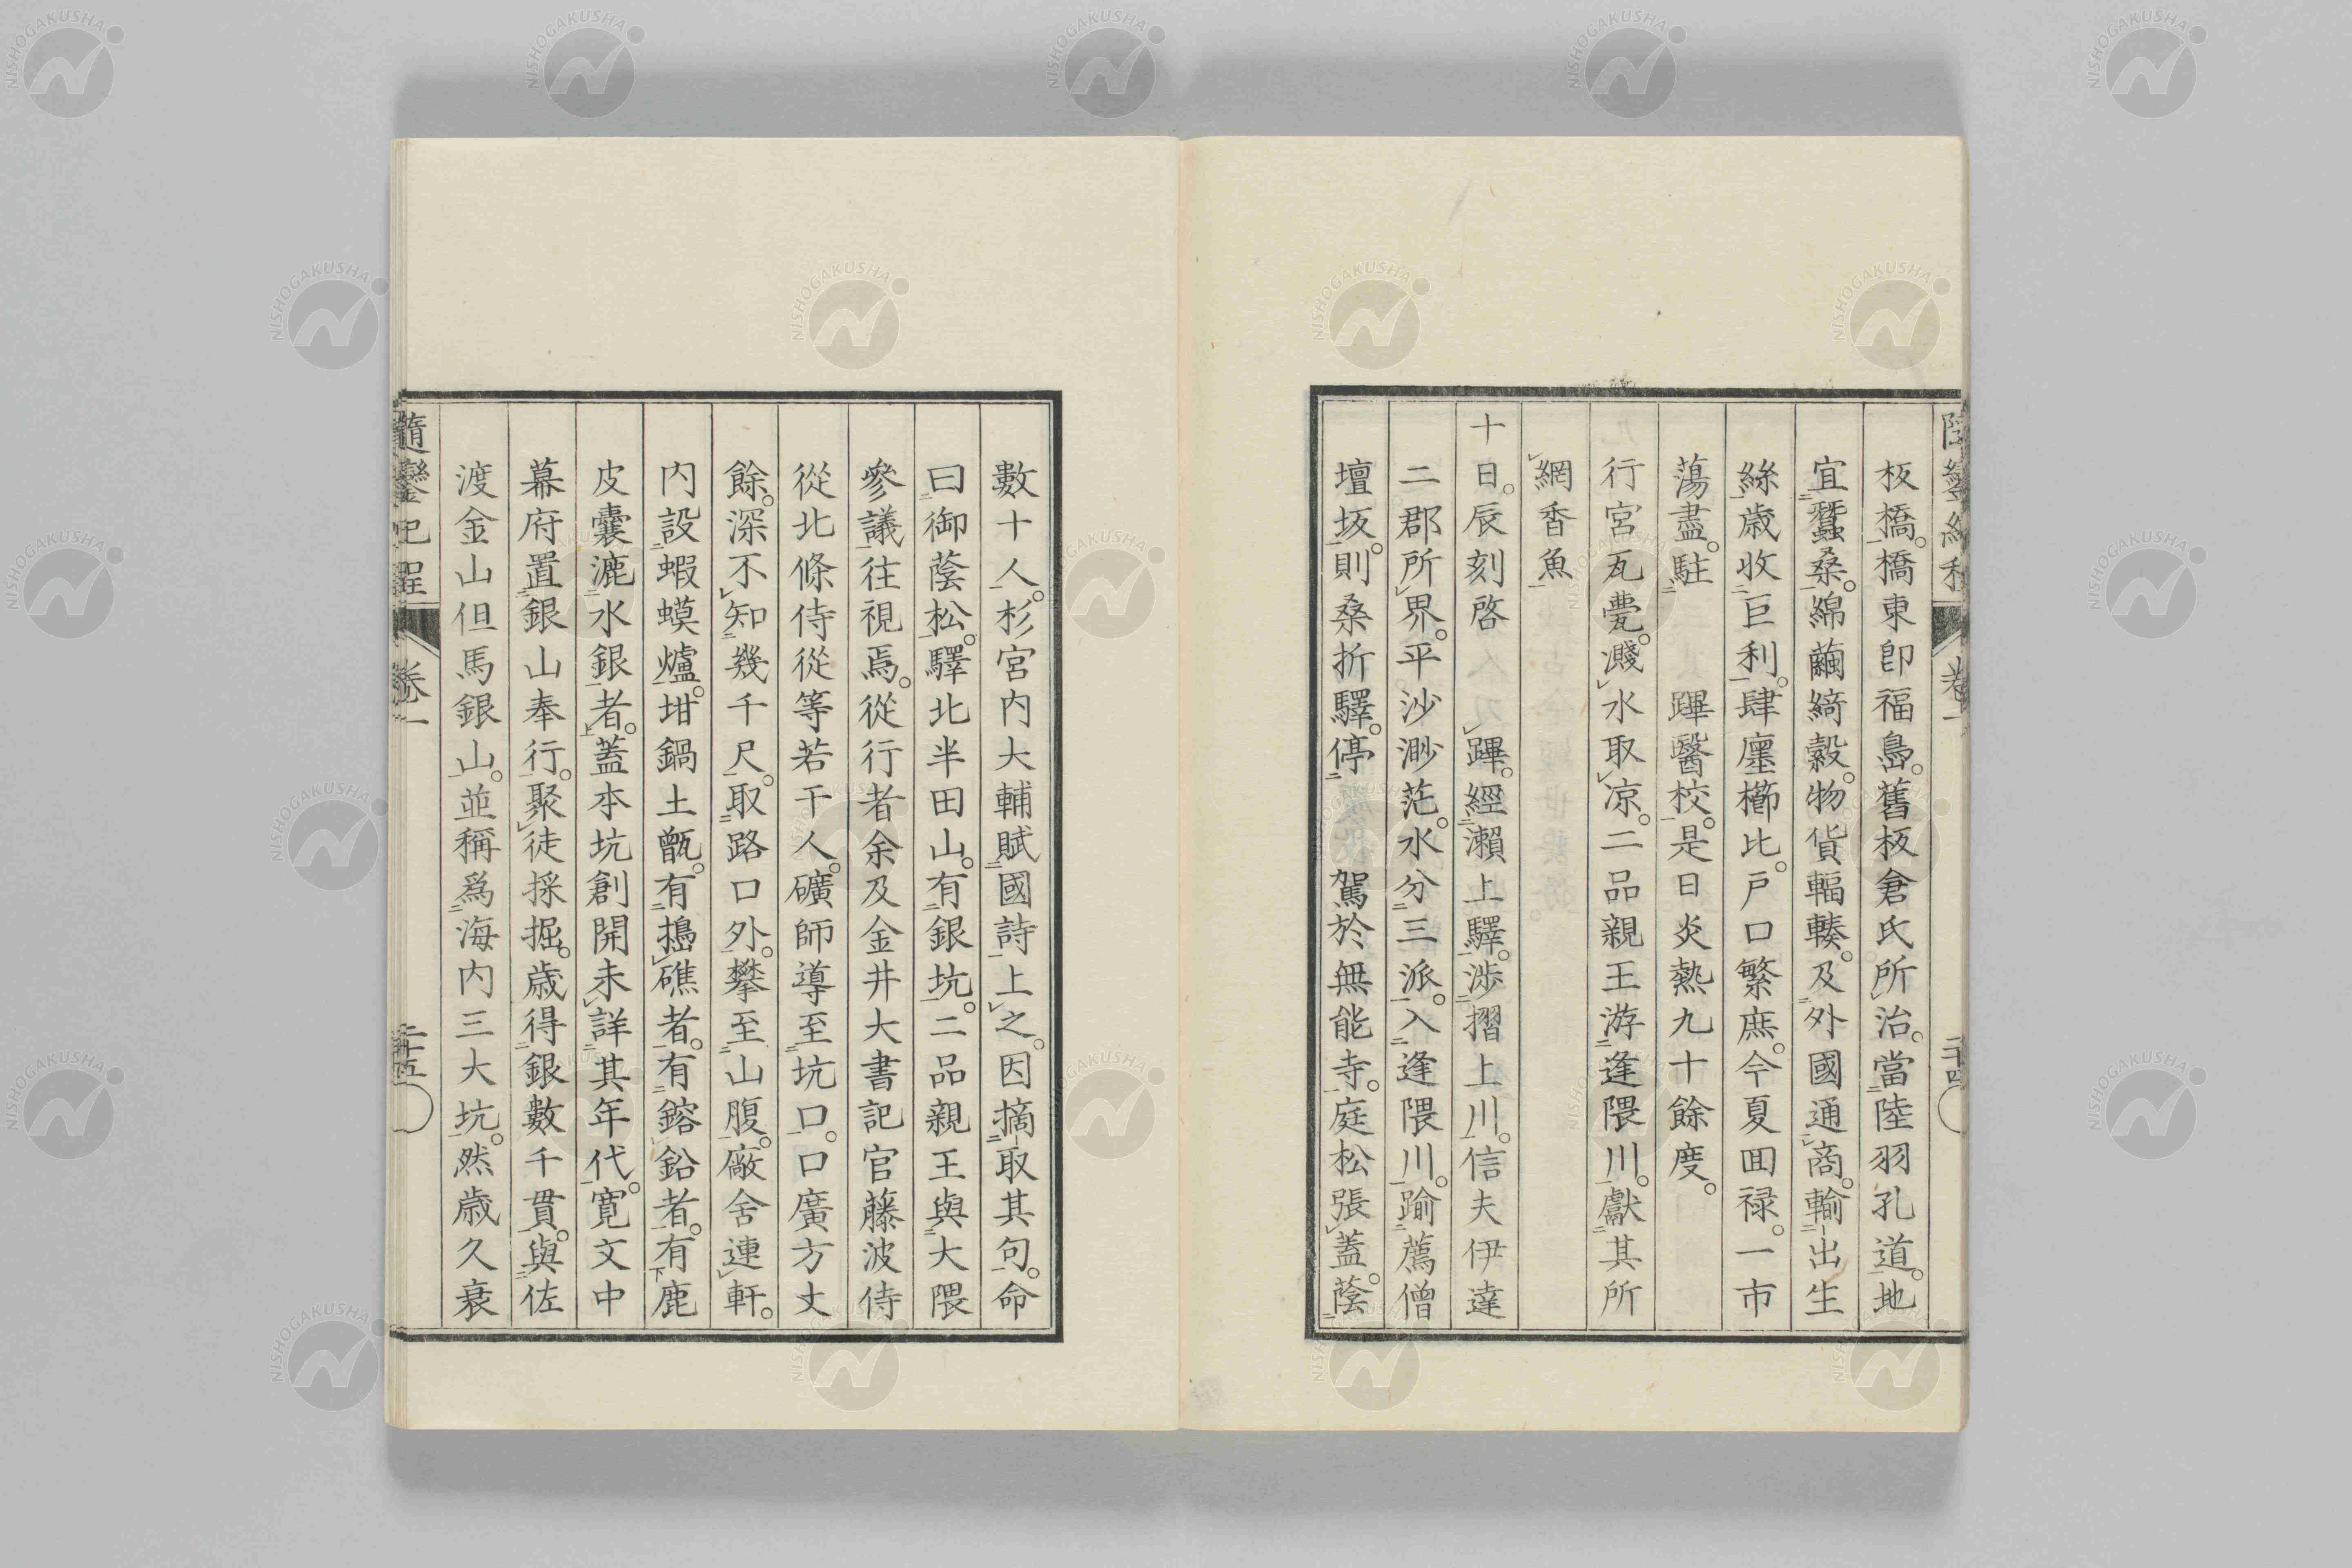 板橋。橋東卽福島。舊板倉氏所治。當陸羽孔道。地
宜蠶桑。綿繭綺縠。物貨輻輳。及外國通商。輸出生
絲歲收巨利。肆廛櫛比。戶口繁庶。今夏囬禄。一市
蕩盡。駐 蹕醫校。是日炎熱九十餘度。
行宮瓦甍。濺水取凉。二品親王游逢隈川。獻其所
網香魚
十日。辰刻啓 蹕。經瀨上驛。渉摺上川。信夫伊達
二郡所界。平沙渺茫。水分三派。入逢隈川。踰薦僧
壇坂。則桑折驛。停 駕於無能寺。庭松張蓋。蔭
卷一
數十人。杉宮内大輔賦國詩上之。因摘取其句。命
曰御蔭松。驛北半田山。有銀坑。二品親王與大隈
參議往視焉。從行者余及金井大書記官藤波侍
從北條侍從等若干人。礦師導至坑口。口廣方丈
餘。深不知幾千尺。取路口外。攀至山腹。廠舍連軒。
内設蝦蟆爐。坩鍋土甑。有搗礁者。有鎔鉛者。有鹿
皮囊漉水銀者。蓋本坑創開未詳其年代。寬文中
幕府置銀山奉行。聚徒採掘。歲得銀數千貫。與佐
渡金山但馬銀山。並稱爲海内三大坑。然歲久衰
隨鑾紀程 卷一 二十五
NISHOGAKUSHA